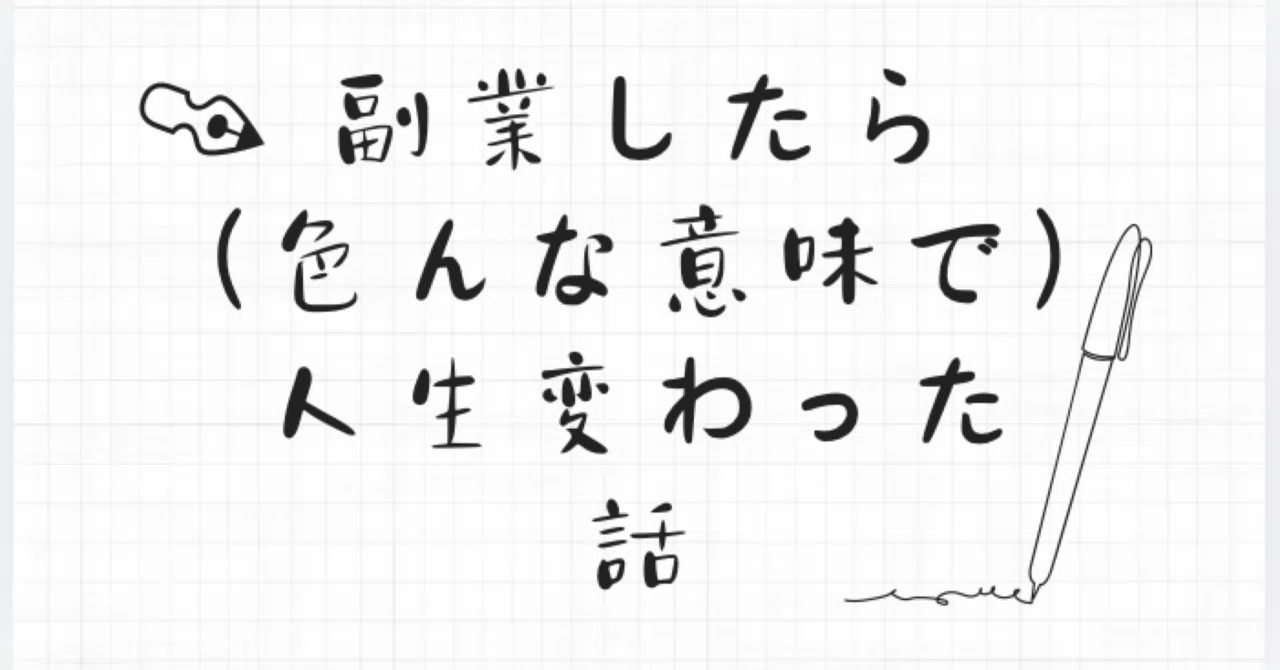 副業したら
(色んな意味で)
人生変わった
話